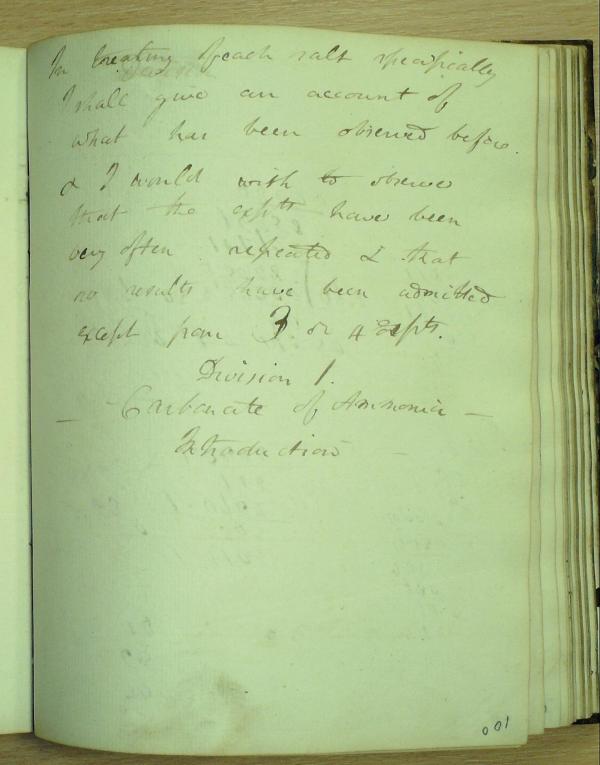 In treating of each salt specifically
I shall give an account of
what has been observed before.
& I would wish to observe
that the expts have been
very often repeated & that
no results have been admitted
except from 3 or 4 Expts.
Division 1.
— Carbonate of Ammonia —
Introduction —
001